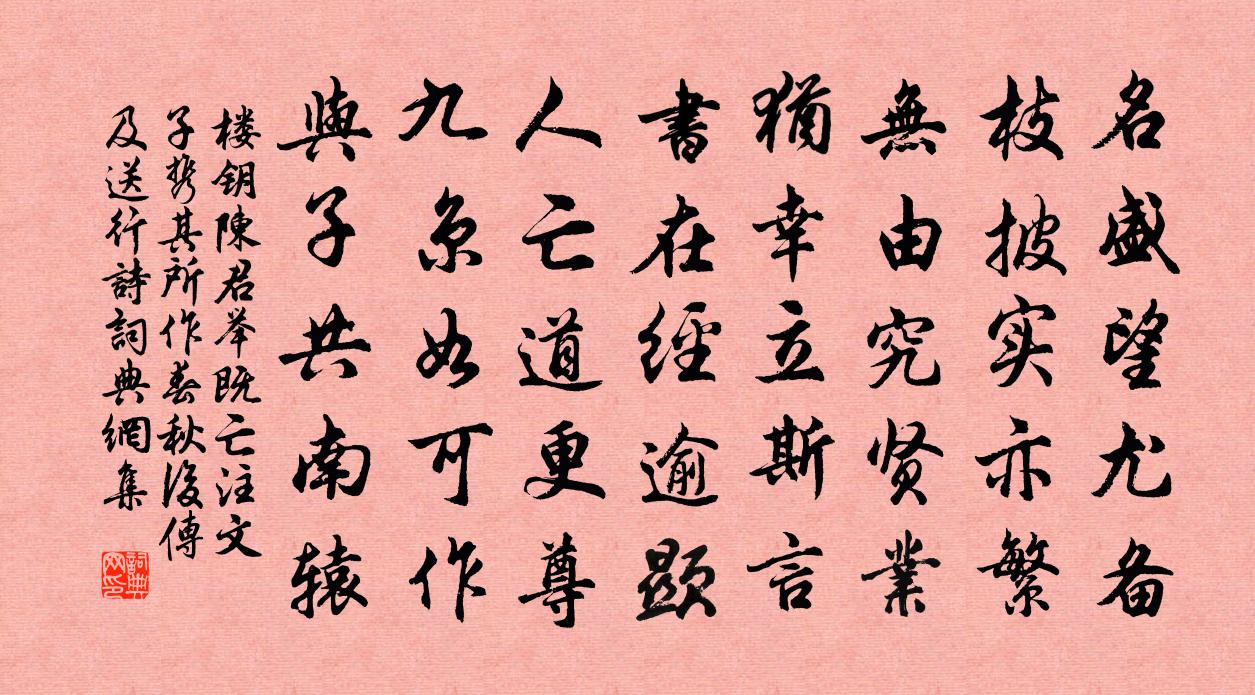 名盛望尤备
枝披实亦繁
無由究贤業
猶幸立斯言
書在經逾顯
人亡道更尊
九京如可作
與子共南辕
楼钥陳君举既亡注文
子携其所作春秋後傳
及送行詩詞典網集
詞典网印